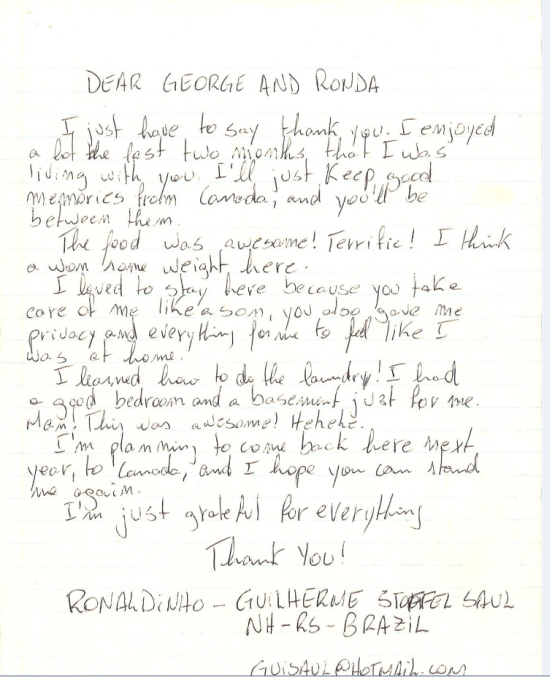 DEAR GEORGE AND RONDA
I just have to say thank you. I enjoyed
a lot the last two months that I was
living with you. I'll just keep good
memories from Canada, and you'll be
between them.
The food was awesome! Terrific! I think
a won some weight here.
I loved to stay here because you take
care of me like a son, you also gave me
privacy and everything for me to feel like I
was at home.
I learned how to do the laundry! I had
a good bedroom and a basement just for me.
Man! This was awesome! Hehehe.
I'm planning to come back here next
year, to Canada, and I hope you can stand
me again.
I'm just grateful for everything
Thank You!
RONALDINHO - GUILHERME STOFFEL SAUL
NH-RS-BRAZIL
GUISAUL@HOTMAIL.COM